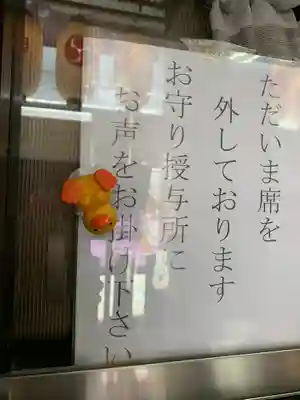 ただいま席を
外しております
お守り授与所に
お声をお掛け下さい